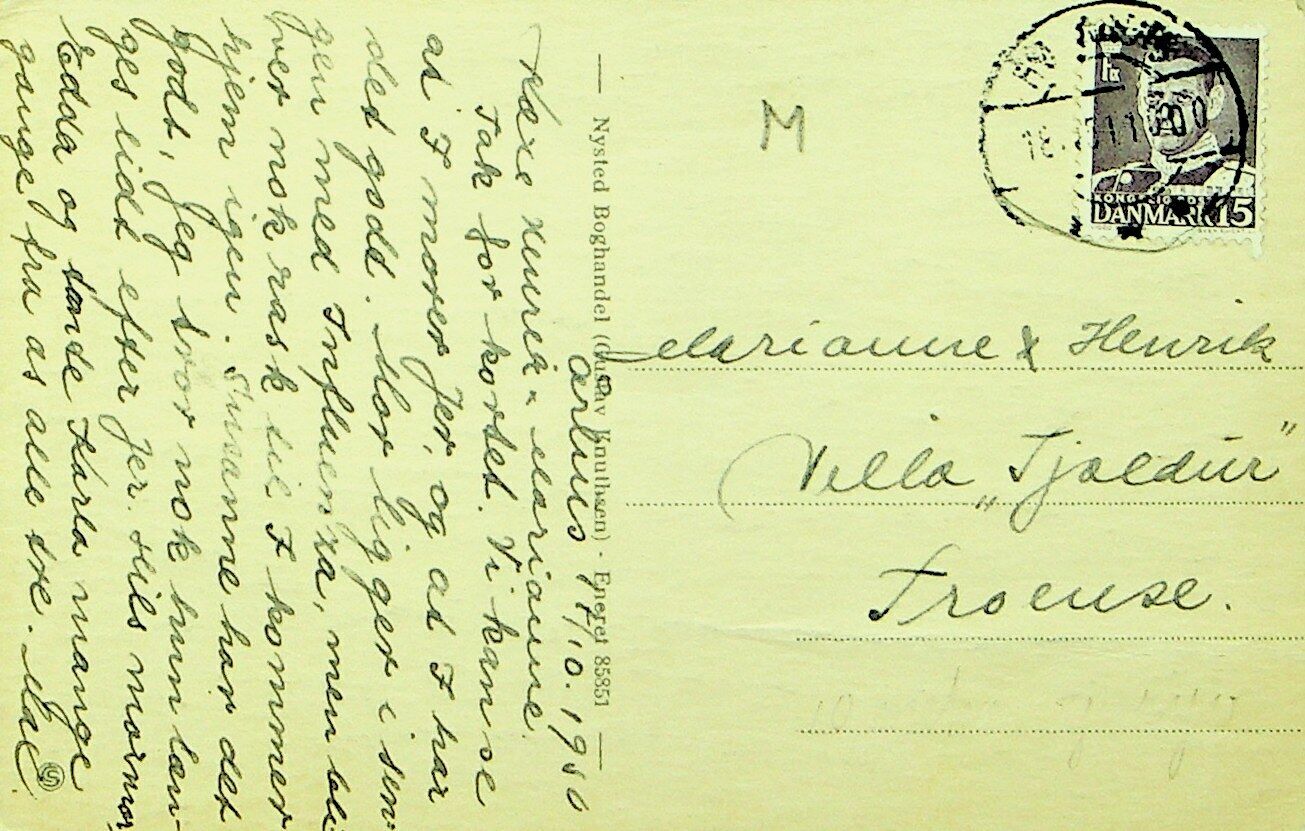 Århus 17/10. 1950
Kære Henrik & Marianne.
Tak for kortet. Vi kan se
at I morer Jer, og at I har
det godt. Mor ligger i sen-
gen med Influenza, men bli-
ver nok rask til I kommer
hjem igen. Susanne har det
godt, Jeg tror nok hun læn-
ges lidt efter Jer. Hils mormor,
Edda og tante Karla mange
gange fra os alle tre.
Nysted Boghandel (Gustav Knuthsen) - Eneret 85851
M
DANMARK 15
Marianne & Henrik
Villa „Tjaldur"
Troense.